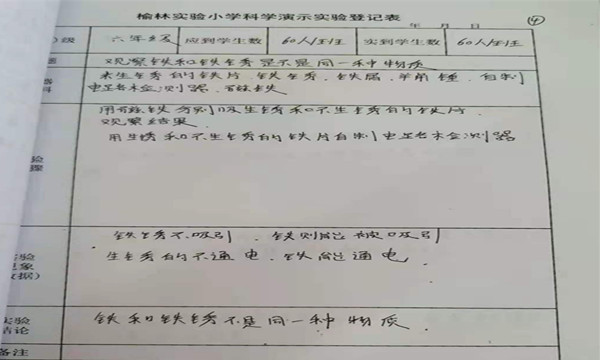 榆林实验小学科学演示实验登记表
年 月 日 ④
级 六年级 应到学生数 60人/班 实到学生数 60人/班
观察铁和铁锈是不是同一种物质
未生锈的铁片、铁锈、铁屑、羊角锤、自制
电路检测器、磁铁
用磁铁分别吸生锈和不生锈的铁片
观察结果.
用生锈和不生锈的铁片自制电路检测器
铁锈不吸引、铁则能被吸引
生锈的不通电,铁能通电
实验
现象
数据)
铁和铁锈不是同一种物质.
实验
结论
备注